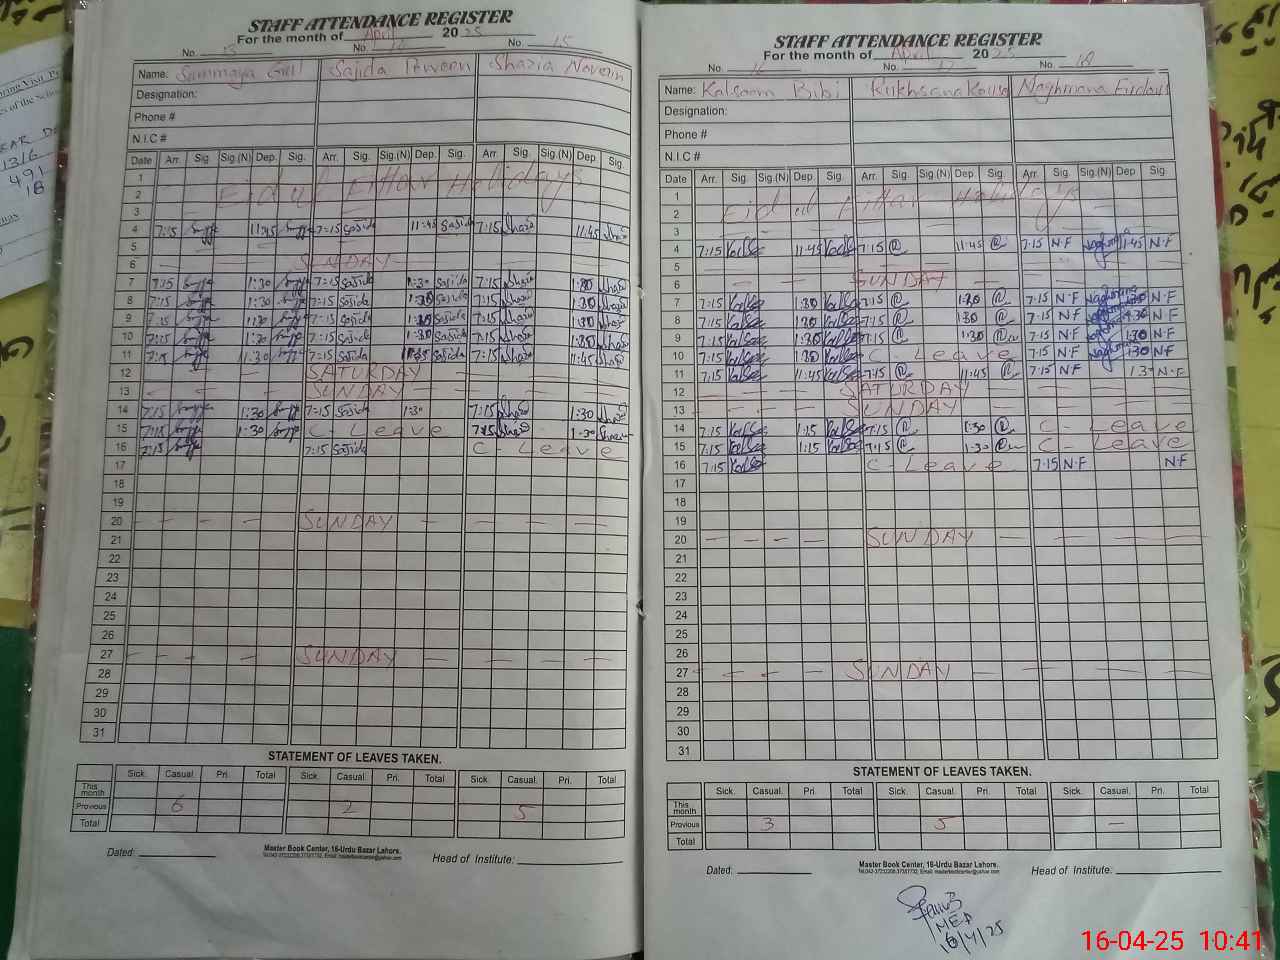 STAFF ATTENDANCE REGISTER
For the month of April 2025
No. 13 No. 14 No. 15
Name: Summaya Gull Sajida Perveen Shazia Noveen
Designation:
Phone #
N.I.C #
Date Arr. Sig. Sig.(N) Dep. Sig. Arr. Sig. Sig.(N) Dep. Sig. Arr. Sig. Sig.(N) Dep. Sig.
1
2 Eidul Fittar Holidays
3
4 7:15 11:45 7:15 Sajida 11:45 Sajida 7:15 Shazia 11:45 Shazia
5
6 SUNDAY
7 7:15 1:30 7:15 Sajida 1:30 Sajida 7:15 Shazia 1:30 Shazia
8 7:15 1:30 7:15 Sajida 1:30 Sajida 7:15 Shazia 1:30 Shazia
9 7:15 1:30 7:15 Sajida 1:30 Sajida 7:15 Shazia 1:30 Shazia
10 7:15 1:30 7:15 Sajida 1:30 Sajida 7:15 Shazia 1:30 Shazia
11 7:15 11:30 7:15 Sajida Sajida 7:15 Shazia 11:45 Shazia
12 SATURDAY
13 SUNDAY
14 7:15 1:30 7:15 Sajida 1:30 7:15 Shazia 1:30 Shazia
15 7:15 1:30 C - Leave 7:15 Shazia 1:30
16 7:15 7:15 Sajida C - Leave
17
18
19
20 SUNDAY
21
22
23
24
25
26
27 SUNDAY
28
29
30
31
STATEMENT OF LEAVES TAKEN.
Sick. Casual. Pri. Total Sick. Casual. Pri. Total Sick. Casual. Pri. Total
This month
Previous 6 2 5
Total
Dated: Head of Institute:
Master Book Center, 16-Urdu Bazar Lahore.
STAFF ATTENDANCE REGISTER
For the month of April 2025
No. 16 No. 17 No. 18
Name: Kalsoom Bibi Rukhsana Kousar Naghmana Firdous
Designation:
Phone #
N.I.C #
Date Arr. Sig. Sig.(N) Dep. Sig. Arr. Sig. Sig.(N) Dep. Sig. Arr. Sig. Sig.(N) Dep. Sig.
1
2 Eid ul Fittar Holidays
3
4 7:15 11:45 7:15 11:45 7:15 N.F 11:45 N.F
5
6 SUNDAY
7 7:15 1:30 7:15 1:30 7:15 N.F 1:30 N.F
8 7:15 1:30 7:15 1:30 7:15 N.F 1:30 N.F
9 7:15 1:30 7:15 1:30 7:15 N.F 1:30 N.F
10 7:15 1:30 C - Leave 7:15 N.F 1:30 N.F
11 7:15 11:45 7:15 11:45 7:15 N.F N.F
12 SATURDAY
13 SUNDAY
14 7:15 1:15 7:15 1:30 C - Leave
15 7:15 1:15 7:15 1:30 C - Leave
16 7:15 C - Leave 7:15 N.F N.F
17
18
19
20 SUNDAY
21
22
23
24
25
26
27 SUNDAY
28
29
30
31
STATEMENT OF LEAVES TAKEN.
Sick. Casual. Pri. Total Sick. Casual. Pri. Total Sick. Casual. Pri. Total
This month
Previous 3 5 —
Total
Dated: Head of Institute:
Master Book Center, 16-Urdu Bazar Lahore.
MEA
16/4/25
16-04-25 10:41